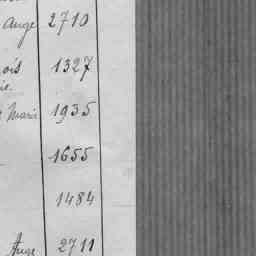 Ange 2710
ois 1327
ie
Marie 1935
1655
1484
Ange 2711